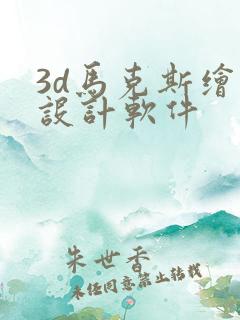 3d馬克斯繪
設計軟件
朱世香
未經同意禁止轉載